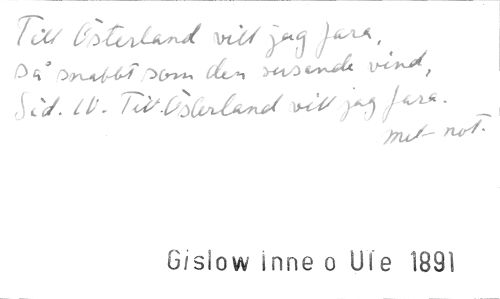 Till Österland vill jag fara,
så snabbt som den susande vind,
Sid. 10. Till Österland vill jag fara.
met not.
Gislow Inne o Ute 1891